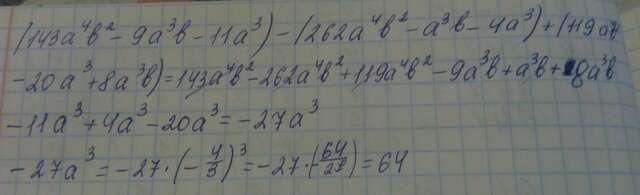 (143a⁴b² - 9a³b - 11a³) - (262a⁴b² - a³b - 4a³) + (119a⁴b²
- 20a³ + 8a³b) = 143a⁴b² - 262a⁴b² + 119a⁴b² - 9a³b + a³b + 8a³b
- 11a³ + 4a³ - 20a³ = -27a³
- 27a³ = -27 · (-4/3)³ = -27 · (-64/27) = 64